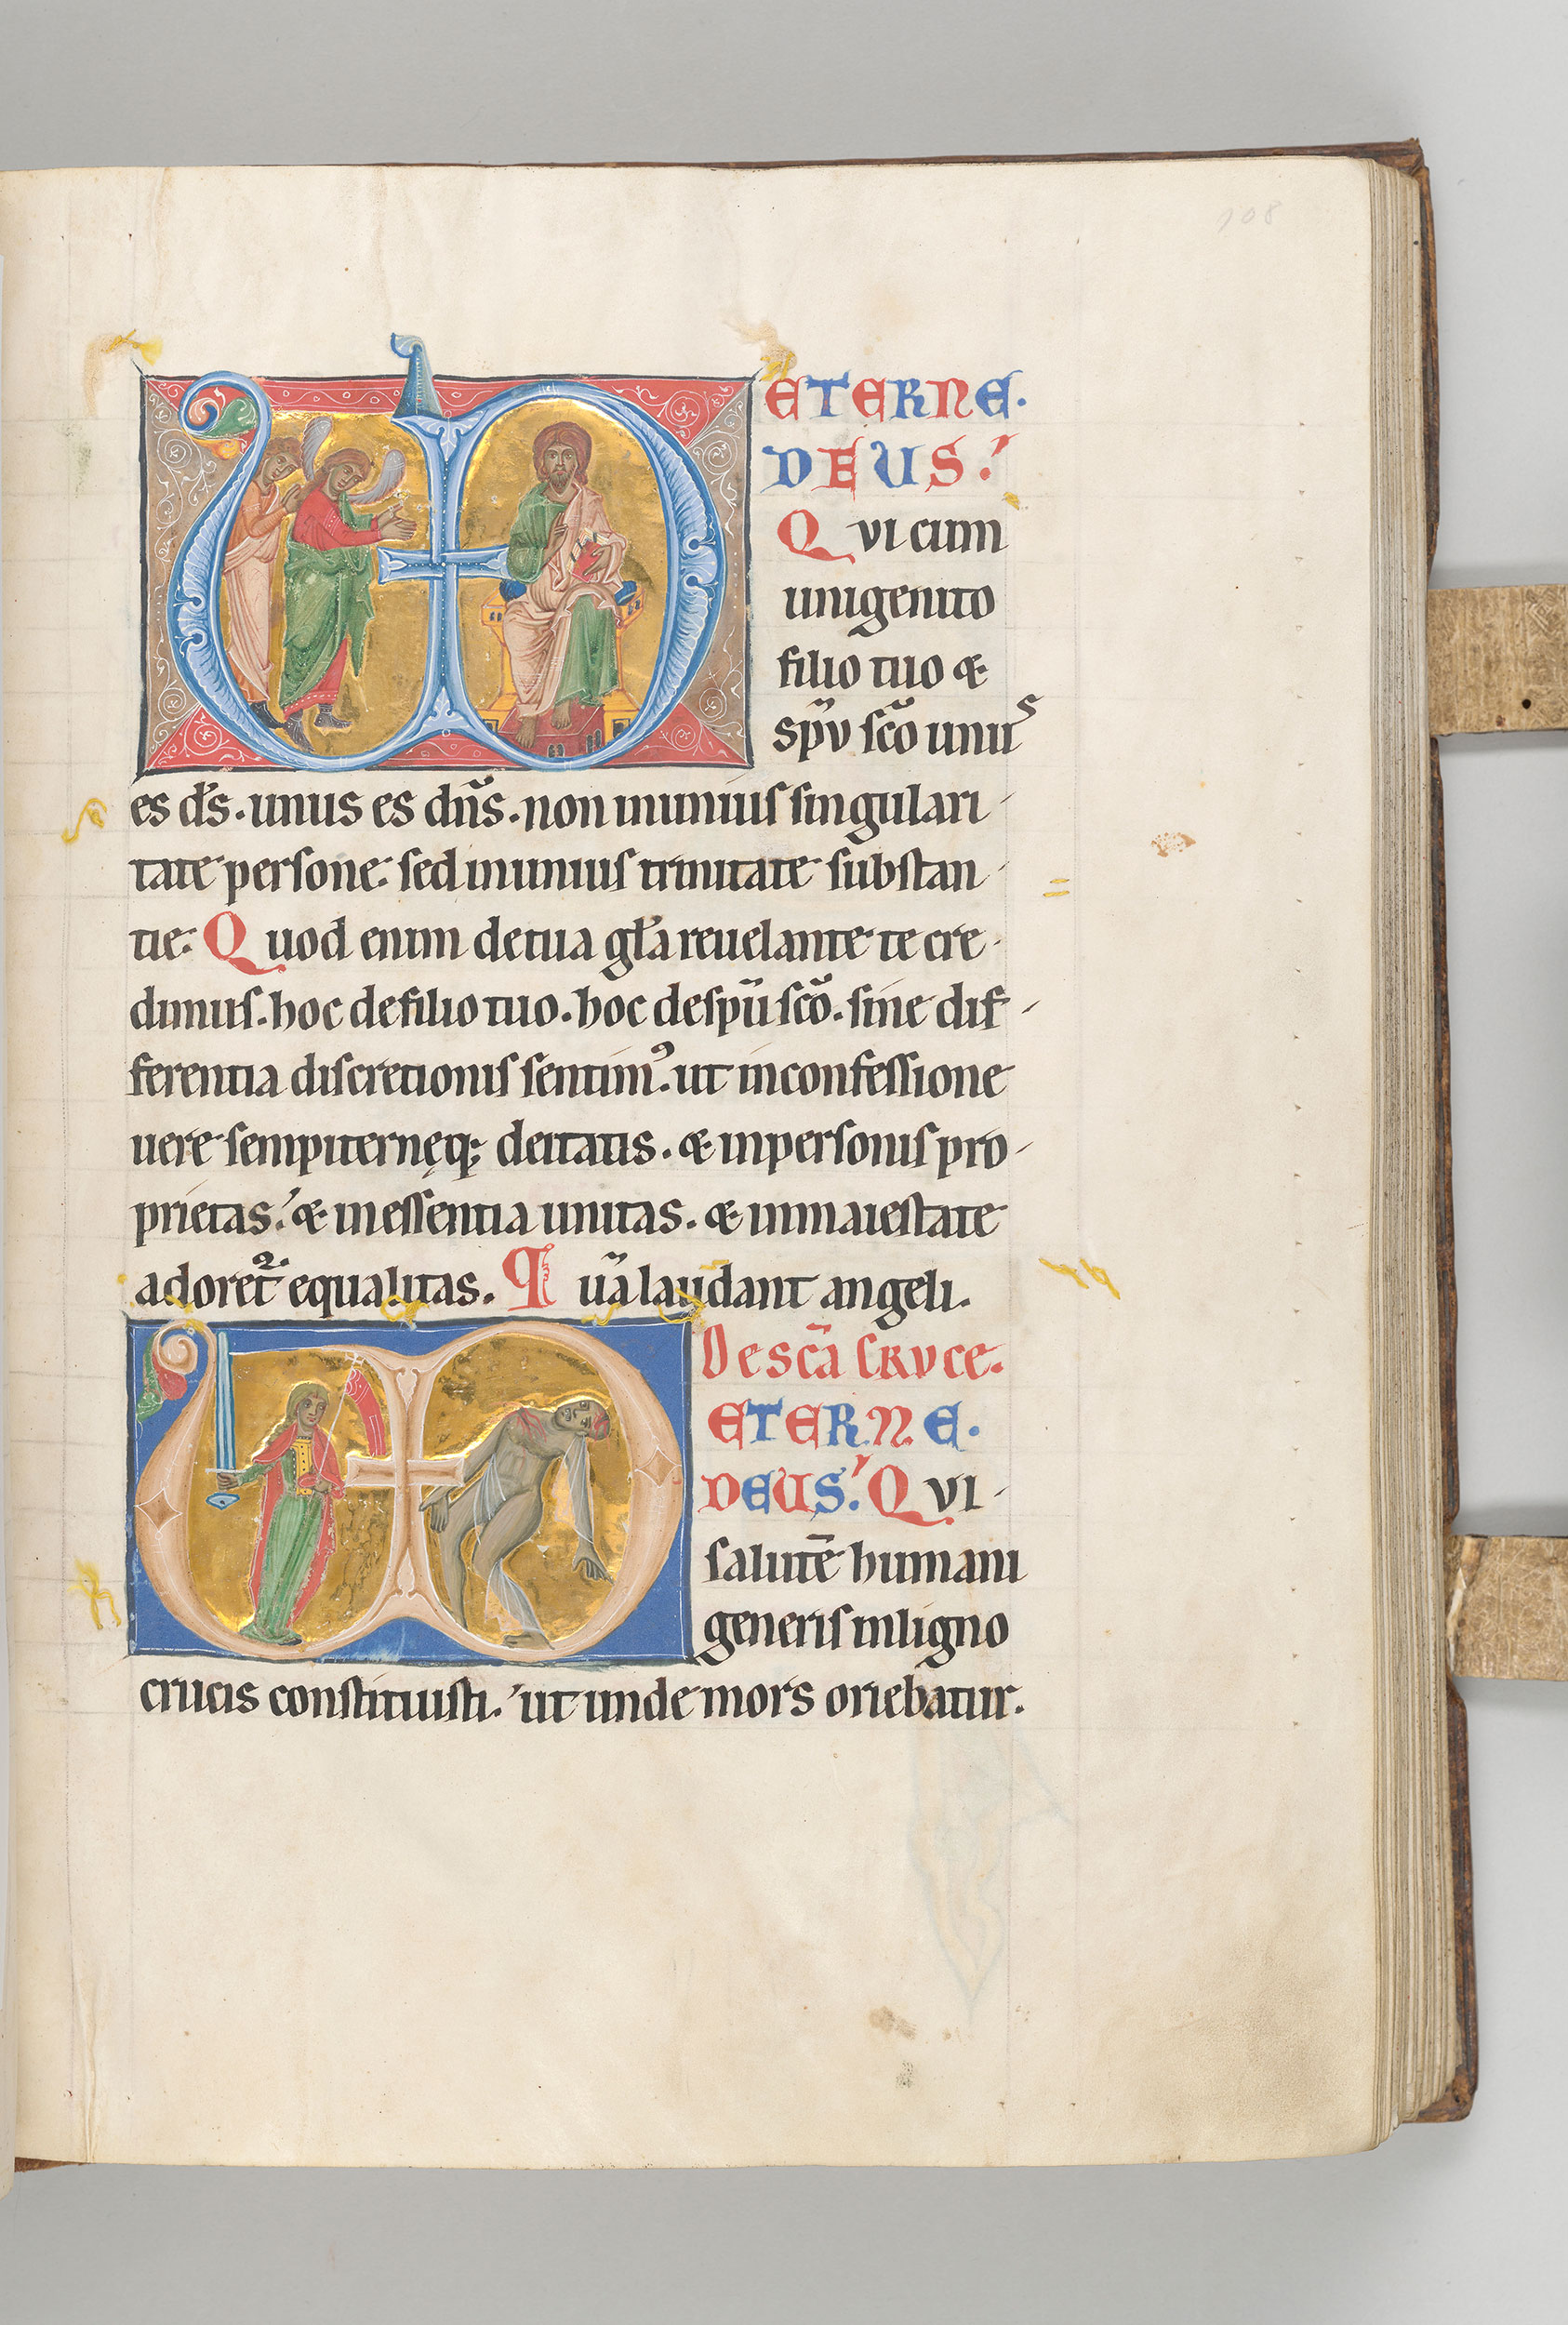 108
ETERNE.
DEUS.
Qui cum
unigenito
filio tuo &
spū scō unus
es ds̄. unus es dn̄s. non in unius singulari
tate persone: sed in unius trinitate substan
tie: Quod enim de tua gl̄a reuelante te cre
dimus. hoc de filio tuo. hoc de spū scō. sine dif
ferentia discretionis sentimꝰ. ut in confessione
uere sempiternęq; deitatis. & in personis pro
prietas. & in essentia unitas. & in maiestate
adoret᷑ equalitas. Quā laudant angeli.
De scā cruce.
ETERNE.
DEUS. Qui
salutē humani
generis in ligno
crucis constituisti. ut unde mors oriebatur.